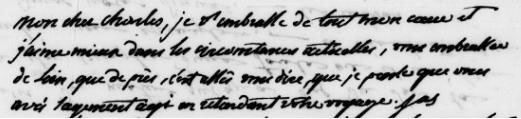 mon cher charles, je t'embrasse de tout mon coeur et
j'aime mieux dans les circonstances actuelles, vous embrasser
de loin, que de près, c'est assés vous dire, que je pense que vous
avés sagement agi en retardant votre voyage.